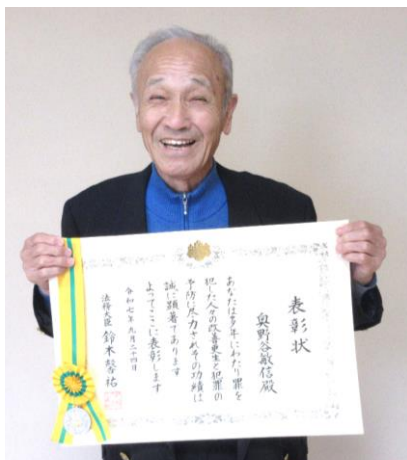 表彰状
奥野谷敏信殿
あなたは多年にわたり罪を
犯した人々の改善更生と犯罪の
予防に尽力されその功績は
誠に顕著であります
よってここに表彰します
令和七年九月二十四日
法務大臣 鈴木馨祐